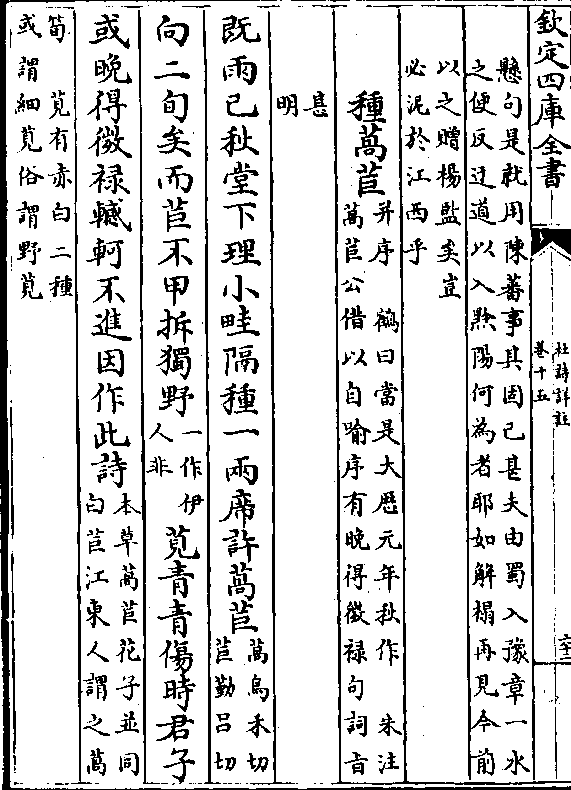 欽定四庫全書
杜詩詳註
卷十五
六十二
懸句是就用陳蕃事其固已甚夫由蜀入豫章一水
之便反迂道以入黔陽何為者耶如解榻再見今前
以之贈楊監矣豈
必泥於江西乎
種萵苣
并序 鶴曰當是大歷元年秋作 朱注
萵苣公借以自喻序有晚得微祿句詞旨
甚
明
既雨已秋堂下理小畦隔種一兩席許萵苣
萵烏禾切
苣勤呂切
向二旬矣而苣不甲拆獨野
一作伊
人非
莧青青傷時君子
或晚得微祿轗軻不進因作此詩
本草萵苣花子並同
白苣江東人謂之萵
筍 莧有赤白二種
或謂細莧俗謂野莧